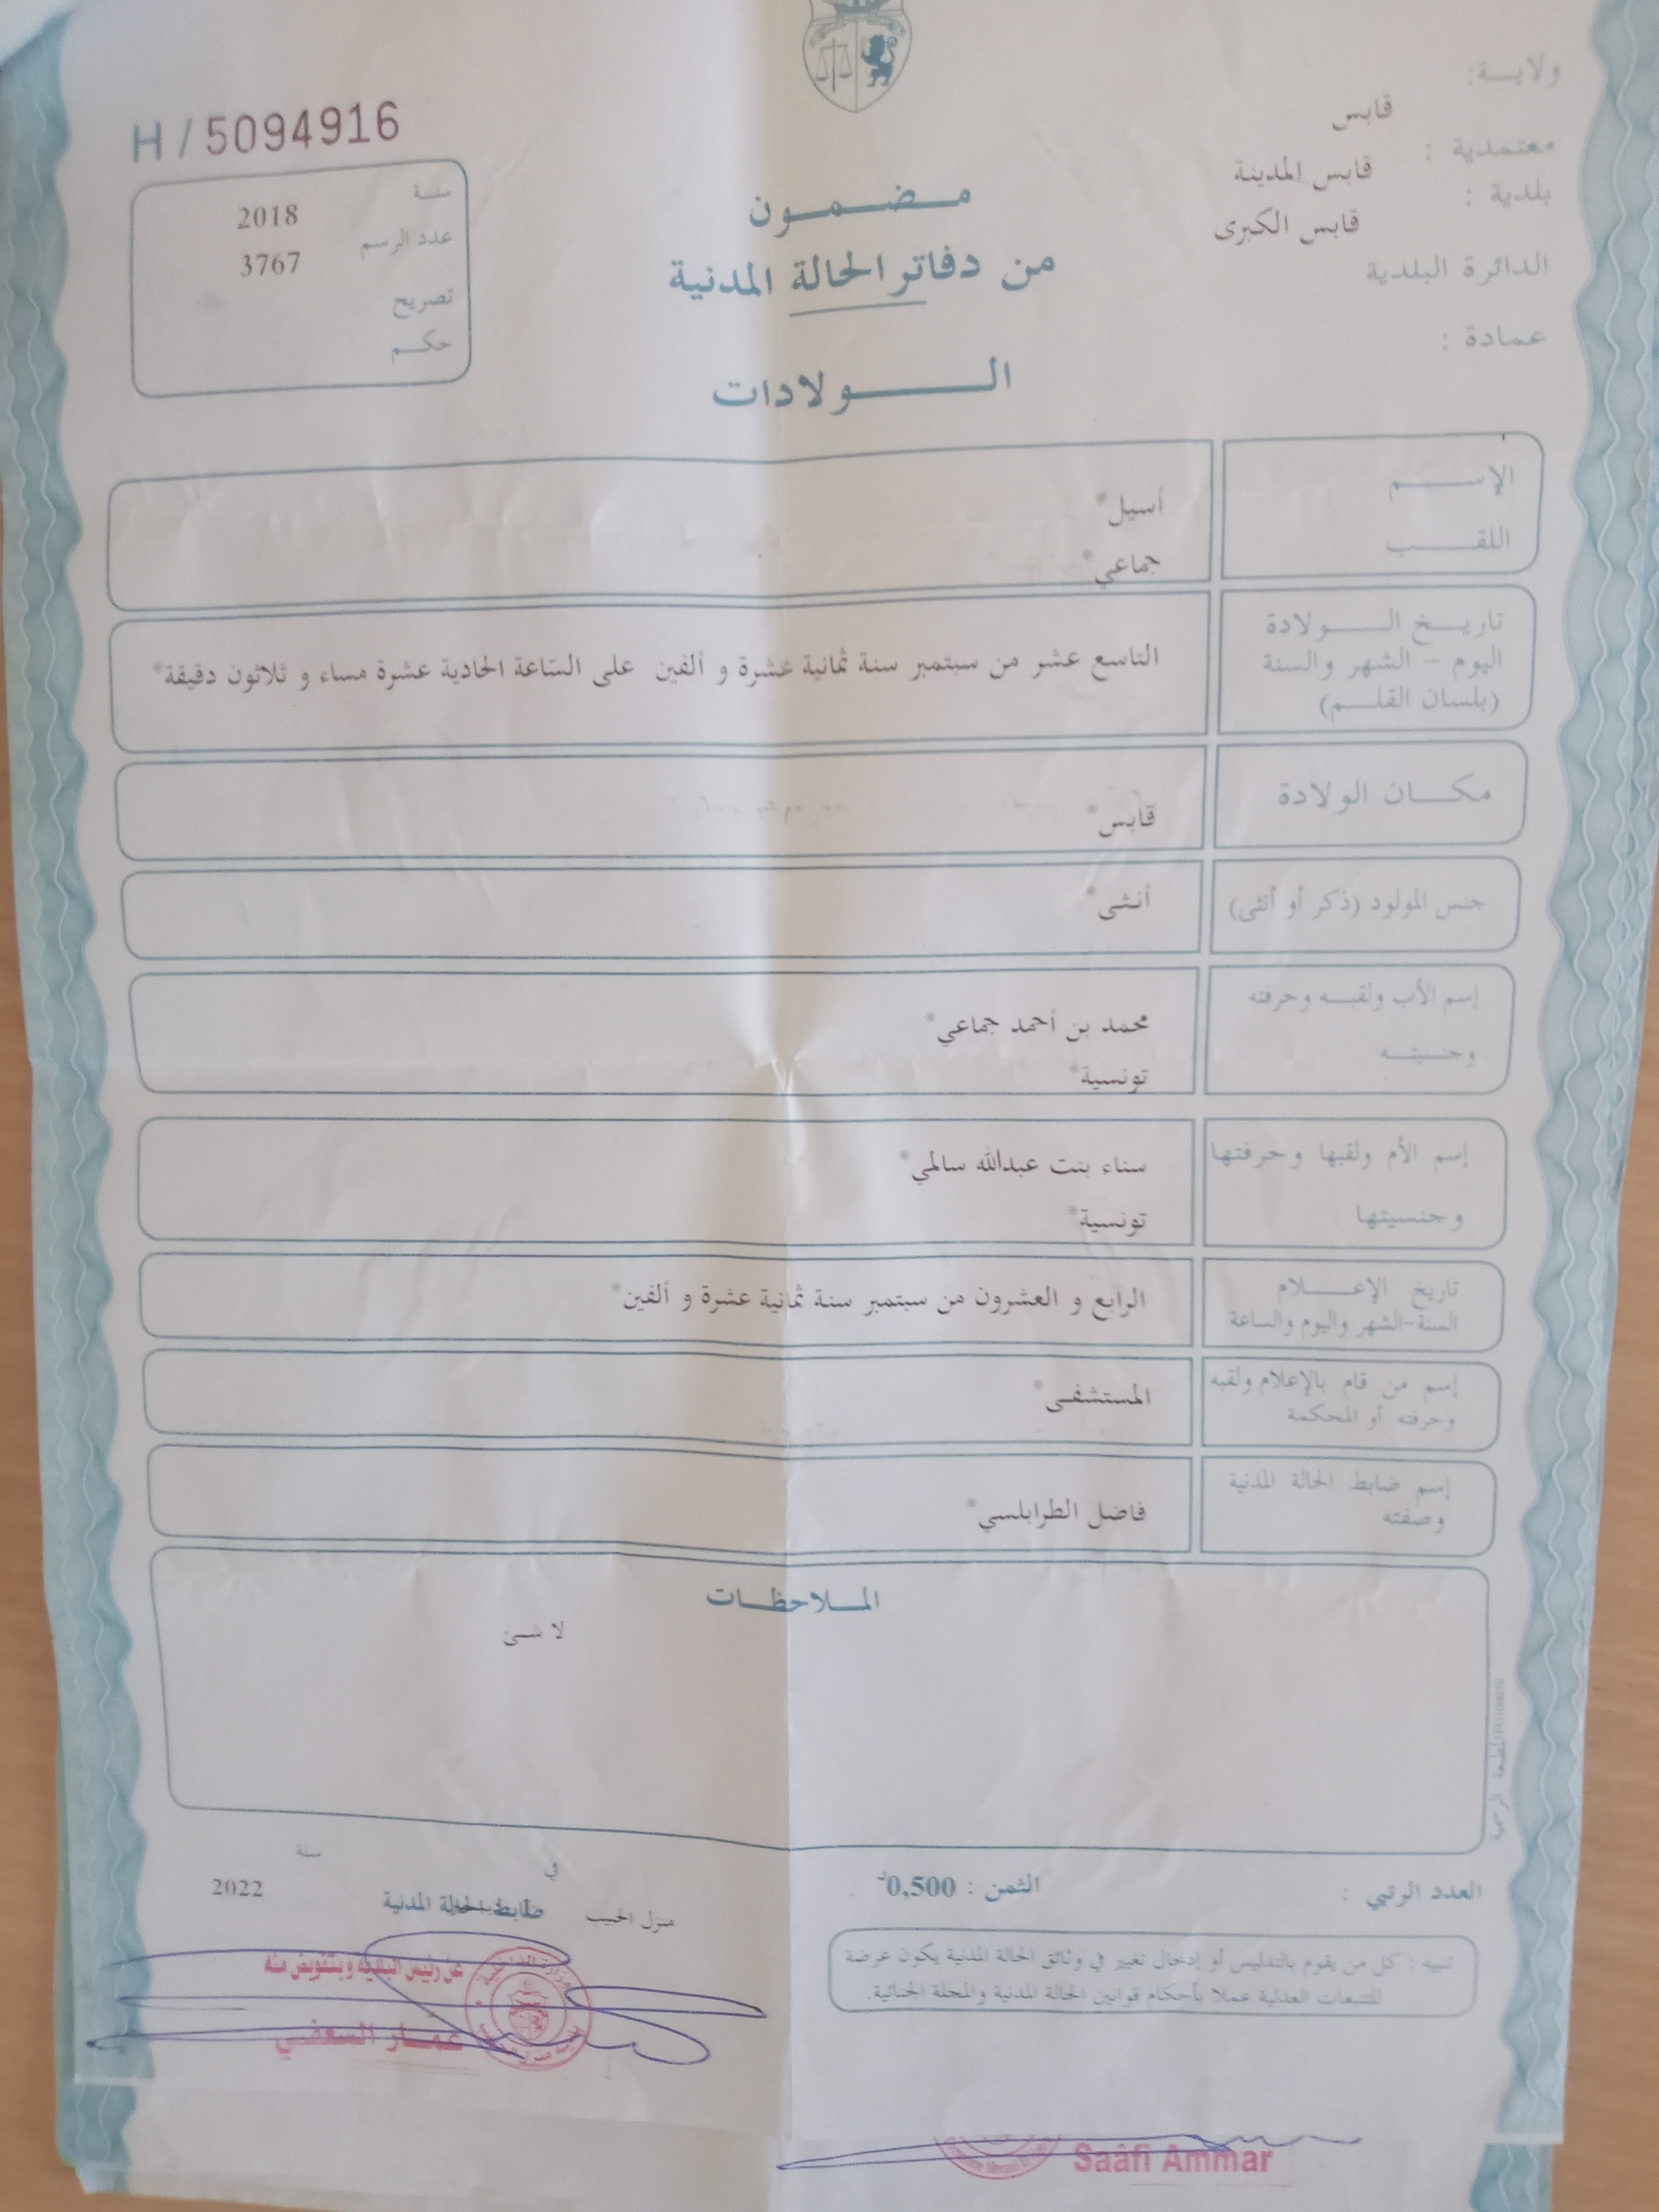 ولايـــة:
قابس
معتمدية :
قابس المدينة
بلدية :
قابس الكبرى
الدائرة البلدية
عمادة :
H / 5094916
سنـة
2018
عدد الرسم
3767
تصريح
حكــم
مـــضـــمـــون
من دفاتر الحالة المدنية
الـــــــولادات
الإســــــم
أسيل*
اللقــــــب
جماعي*
تاريـــخ الـــــولادة
اليوم – الشهر والسنة
(بلسان القلـــم)
التاسع عشر من سبتمبر سنة ثمانية عشرة و ألفين على السّاعة الحادية عشرة مساء و ثلاثون دقيقة*
مكـــان الولادة
قابس*
جنس المولود (ذكر أو أنثى)
أنثى*
إسم الأب ولقبــه وحرفته
وجنسيتــه
محمد بن أحمد جماعي*
تونسية*
إسم الأم ولقبها وحرفتها
وجنسيتها
سناء بنت عبدالله سالمي*
تونسية*
تاريخ الإعـــــلام
السنة-الشهر واليوم والساعة
الرابع و العشرون من سبتمبر سنة ثمانية عشرة و ألفين*
إسم من قام بالإعلام ولقبه
وحرفته أو المحكمة
المستشفى*
إسم ضابط الحالة المدنية
وصفته
فاضل الطرابلسي*
المــلاحظــات
لا شئ
المطبعة الرسمية
العدد الرتبي :
الثمن : 0,500د
منزل الحبيب
في
سنة
2022
ضابط الحالة المدنية
عن رئيس البلدية وبتفويض منه
عمّار السعفي
تنبيه : كل من يقوم بالتدليس أو إدخال تغيير في وثائق الحالة المدنية يكون عرضة
للتتبعات العدلية عملا بأحكام قوانين الحالة المدنية والمجلة الجنائية.
Saâfi Ammar